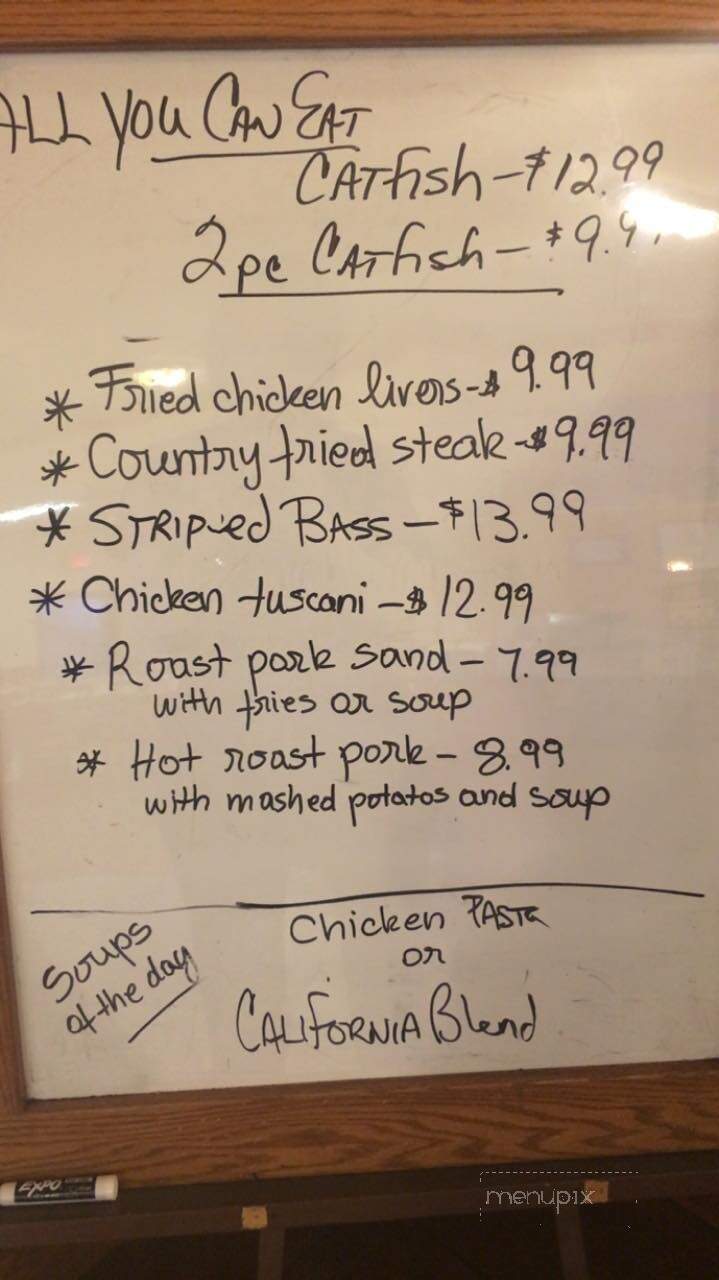 ALL YOU CAN EAT
CATfish - $12.99
2pc CATfish - $9.9
* Fried chicken livers - $9.99
* Country fried steak - $9.99
* STRIPED BASS - $13.99
* Chicken tuscani - $12.99
* Roast pork sand - 7.99
with fries or soup
* Hot roast pork - 8.99
with mashed potatos and soup
Soups
of the day
Chicken PASTA
or
CALIFORNIA Blend
EXPO
menupix